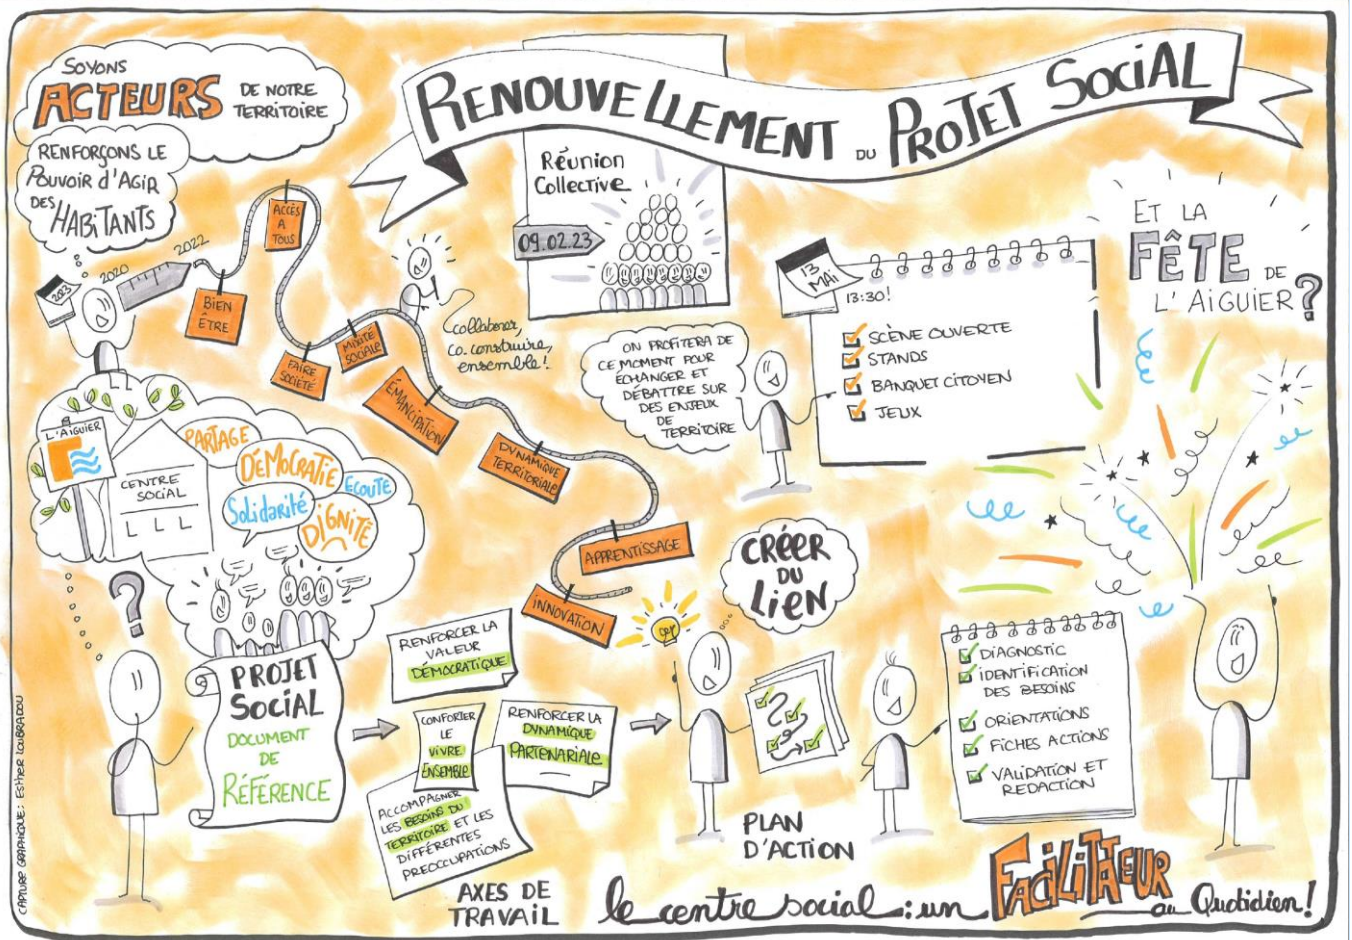 RENOUVELLEMENT DU PROJET SOCIAL
SOYONS
ACTEURS
DE NOTRE
TERRITOIRE
RENFORÇONS LE
POUVOIR d'AGIR
DES HABITANTS
2023
2020
2022
BIEN
ÊTRE
ACCÈS
A
TOUS
FAIRE
SOCIÉTÉ
MIXITÉ
SOCIALE
ÉMANCIPATION
DYNAMIQUE
TERRITORIALE
APPRENTISSAGE
INNOVATION
collaborer,
co-construire,
ensemble!
Réunion
Collective
09.02.23
ON PROFITERA DE
CE MOMENT POUR
ÉCHANGER ET
DÉBATTRE SUR
DES ENJEUX
DE
TERRITOIRE
13
MAI
13:30!
SCÈNE OUVERTE
STANDS
BANQUET CITOYEN
JEUX
ET LA
FÊTE DE
L'AIGUIER?
L'AIGUIER
CENTRE
SOCIAL
PARTAGE
DÉMOCRATIE
ÉCOUTE
Solidarité
DIGNITÉ
?
PROJET
SOCIAL
DOCUMENT
DE
RÉFÉRENCE
RENFORCER LA
VALEUR
DÉMOCRATIQUE
CONFORTER
LE
VIVRE
ENSEMBLE
RENFORCER LA
DYNAMIQUE
PARTENARIALE
ACCOMPAGNER
LES BESOINS DU
TERRITOIRE ET LES
DIFFÉRENTES
PREOCCUPATIONS
AXES DE
TRAVAIL
CRÉER
DU
LIEN
PLAN
D'ACTION
DIAGNOSTIC
IDENTIFICATION
DES BESOINS
ORIENTATIONS
FICHES ACTIONS
VALIDATION ET
REDACTION
le centre social : un FACILITATEUR au Quotidien!
CAPTURE GRAPHIQUE : ESTHER LOUBRADOU